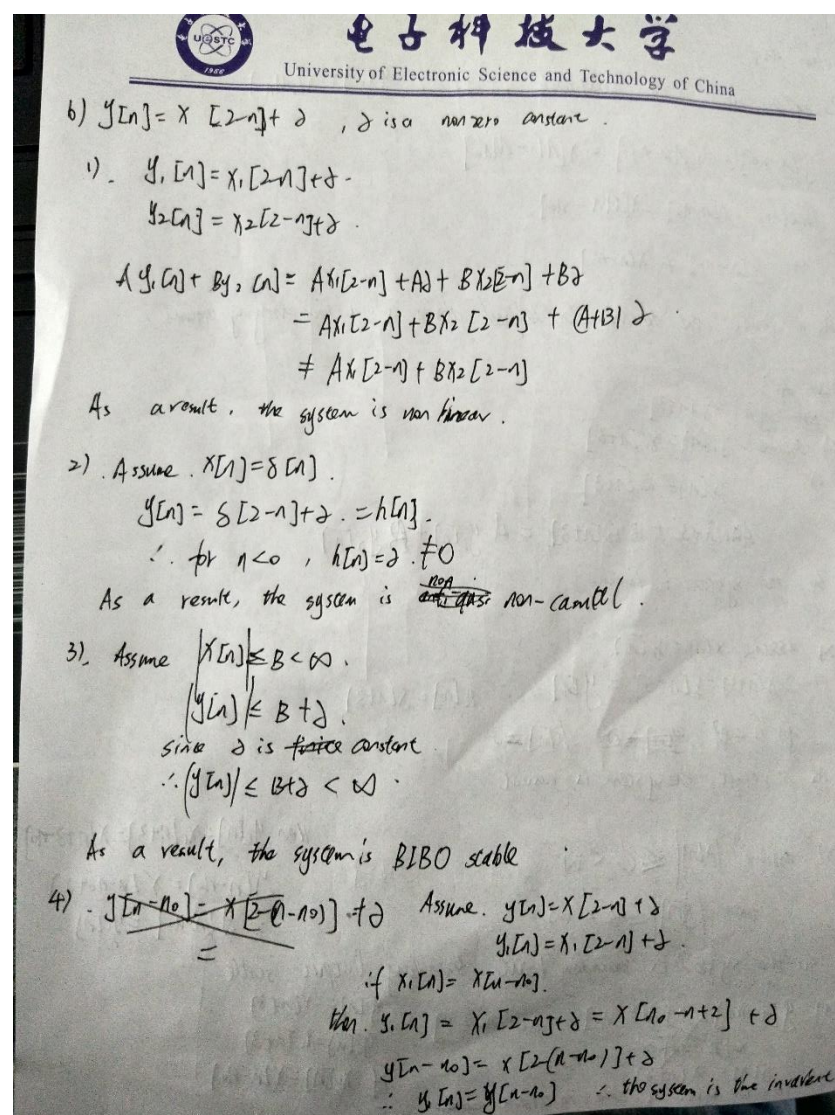 UESTC
1956
电子科技大学
University of Electronic Science and Technology of China
b) y[n] = x [2-n]+ ∂ , ∂ is a non zero constant .
1). y₁[n] = x₁[2-n]+∂.
y₂[n] = x₂[2-n]+∂.
A y₁[n] + By₂[n] = Ax₁[2-n] + A∂ + Bx₂[2-n] + B∂
= Ax₁[2-n] + Bx₂ [2-n] + (A+B) ∂ .
≠ Ax₁[2-n] + Bx₂[2-n]
As a result, the system is non linear.
2). Assume. x[n] = δ[n].
y[n] = δ[2-n]+∂. = h[n].
∴ for n<0 , h[n] = ∂. ≠0
As a result, the system is non non-causal.
3). Assume |x[n]| ≤ B < ∞.
|y[n]| ≤ B+∂.
since ∂ is finite constant
∴ |y[n]| ≤ B+∂ < ∞.
As a result, the system is BIBO stable
4). y[n-n₀] = x[2-(n-n₀)] +∂ Assume. y[n] = x[2-n]+∂
= y₁[n] = x₁[2-n]+∂.
if x₁[n] = x[n-n₀].
then. y₁[n] = x₁[2-n]+∂ = x[n₀-n+2] +∂
y[n-n₀] = x[2-(n-n₀)]+∂
∴ y₁[n] = y[n-n₀] ∴ the system is time invariant